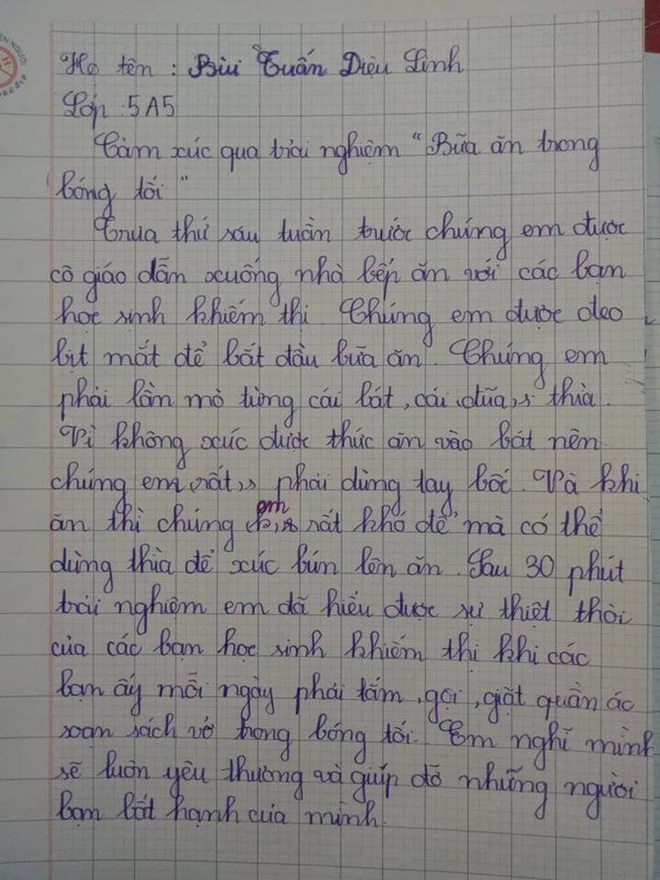 Họ tên : Bùi Tuấn Diệu Linh
Lớp : 5A5
Cảm xúc qua trải nghiệm "Bữa ăn trong
bóng tối"
Trưa thứ sáu tuần trước chúng em được
cô giáo dẫn xuống nhà bếp ăn với các bạn
học sinh khiếm thị. Chúng em được đeo
bịt mắt để bắt đầu bữa ăn. Chúng em
phải lần mò từng cái bát, cái đũa, thìa.
Vì không xúc được thức ăn vào bát nên
chúng em phải dùng tay bốc. Và khi
ăn thì chúng em rất khó để mà có thể
dùng thìa để xúc bún lên ăn. Sau 30 phút
trải nghiệm em đã hiểu được sự thiệt thòi
của các bạn học sinh khiếm thị khi các
bạn ấy mỗi ngày phải tắm, gội, giặt quần áo
soạn sách vở trong bóng tối. Em nghĩ mình
sẽ luôn yêu thương và giúp đỡ những người
bạn bất hạnh của mình.